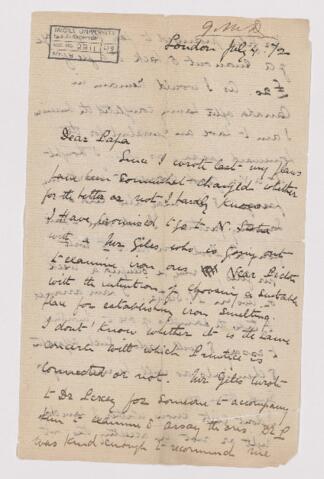 G.M.D
McGILL UNIVERSITY
ACC. NO. 2211
London July 4. 72
Dear Papa
Since I wrote last my plans
have been somewhat changed whether
for the better or not I hardly know
I have promised to go to N. Scotia
with a Mr Giles who is going out
to examine iron ore Near Pictou
with the intention of choosing a suitable
place for establishing iron smelting.
I don't know whether it is the same
concern with which is
connected or not. Mr Giles wrote
to Dr Percy for someone to accompany
him to examine & assay the ores & Dr P.
was kind enough to recommend me